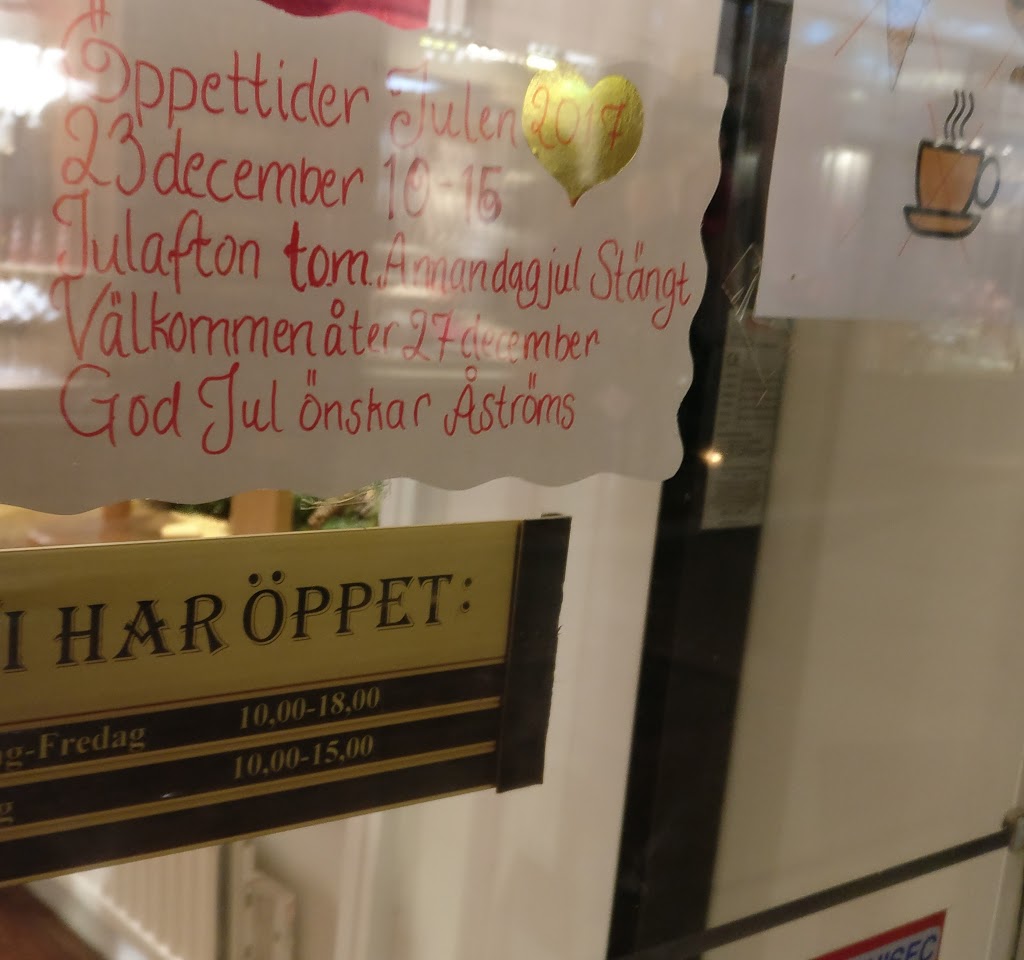 Öppettider Julen 2017
23 december 10-15
Julafton tom. Annandag jul Stängt
Välkommen åter 27 december
God Jul önskar Åströms
I HAR ÖPPET:
g-Fredag 10,00-18,00
g 10,00-15,00